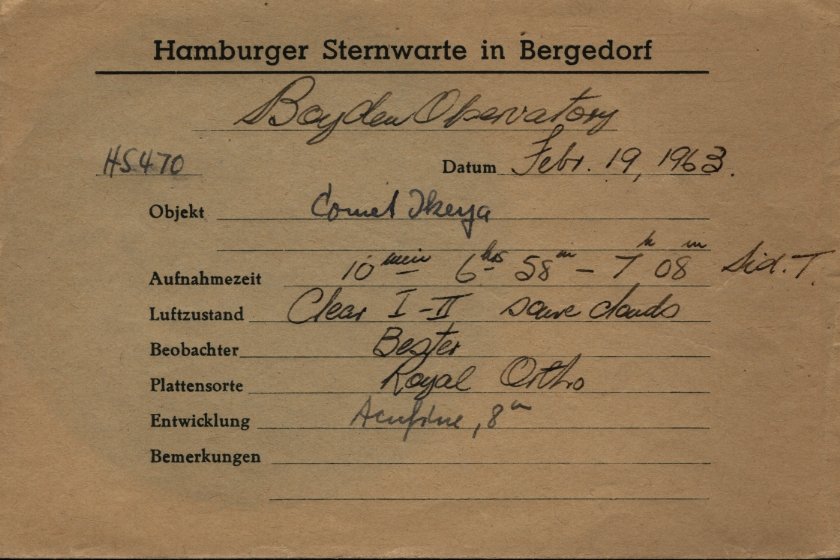 Hamburger Sternwarte in Bergedorf
Boyden Observatory
HS470 Datum Febr. 19, 1963.
Objekt Comet Ikeya
Aufnahmezeit 10 min 6 hrs 58 m - 7 h 08 m Sid. T.
Luftzustand Clear I-II some clouds
Beobachter Bester
Plattensorte Royal Ortho
Entwicklung Acufine, 8 m
Bemerkungen